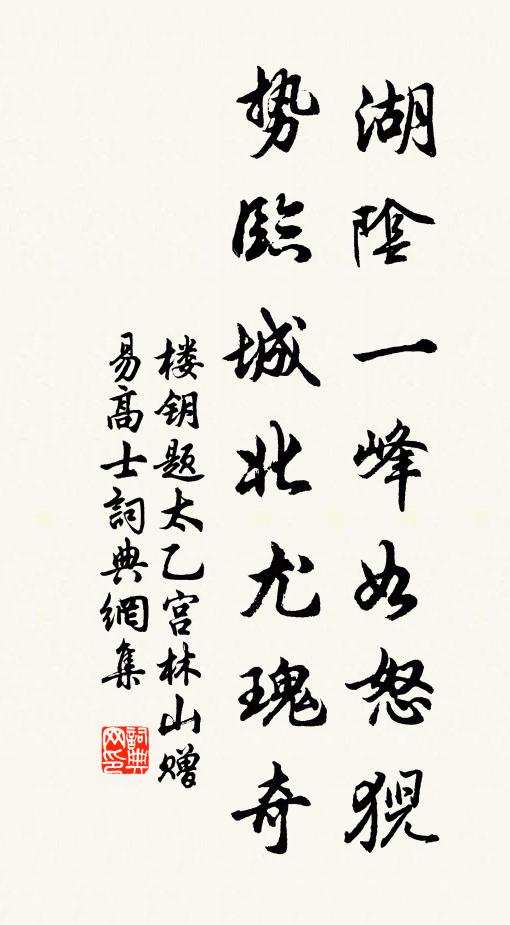 湖陰一峰如怒猊
势臨城北尤瑰奇
楼钥题太乙宫林山赠
易高士詞典網集
詞典网印